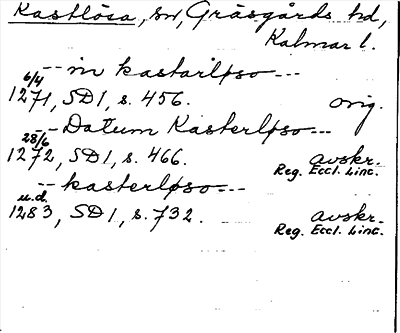 Kastlösa, sn, Gräsgårds hd,
Kalmar l.
-- in kastarløso ---
6/4
1271, SD1, s. 456. orig.
-- Datum Kasterløso ---
28/6
1272, SD1, s. 466. avskr.
Reg. Eccl. Linc.
-- kasterløso ---
u.d.
1283, SD1, s. 732. avskr.
Reg. Eccl. Linc.